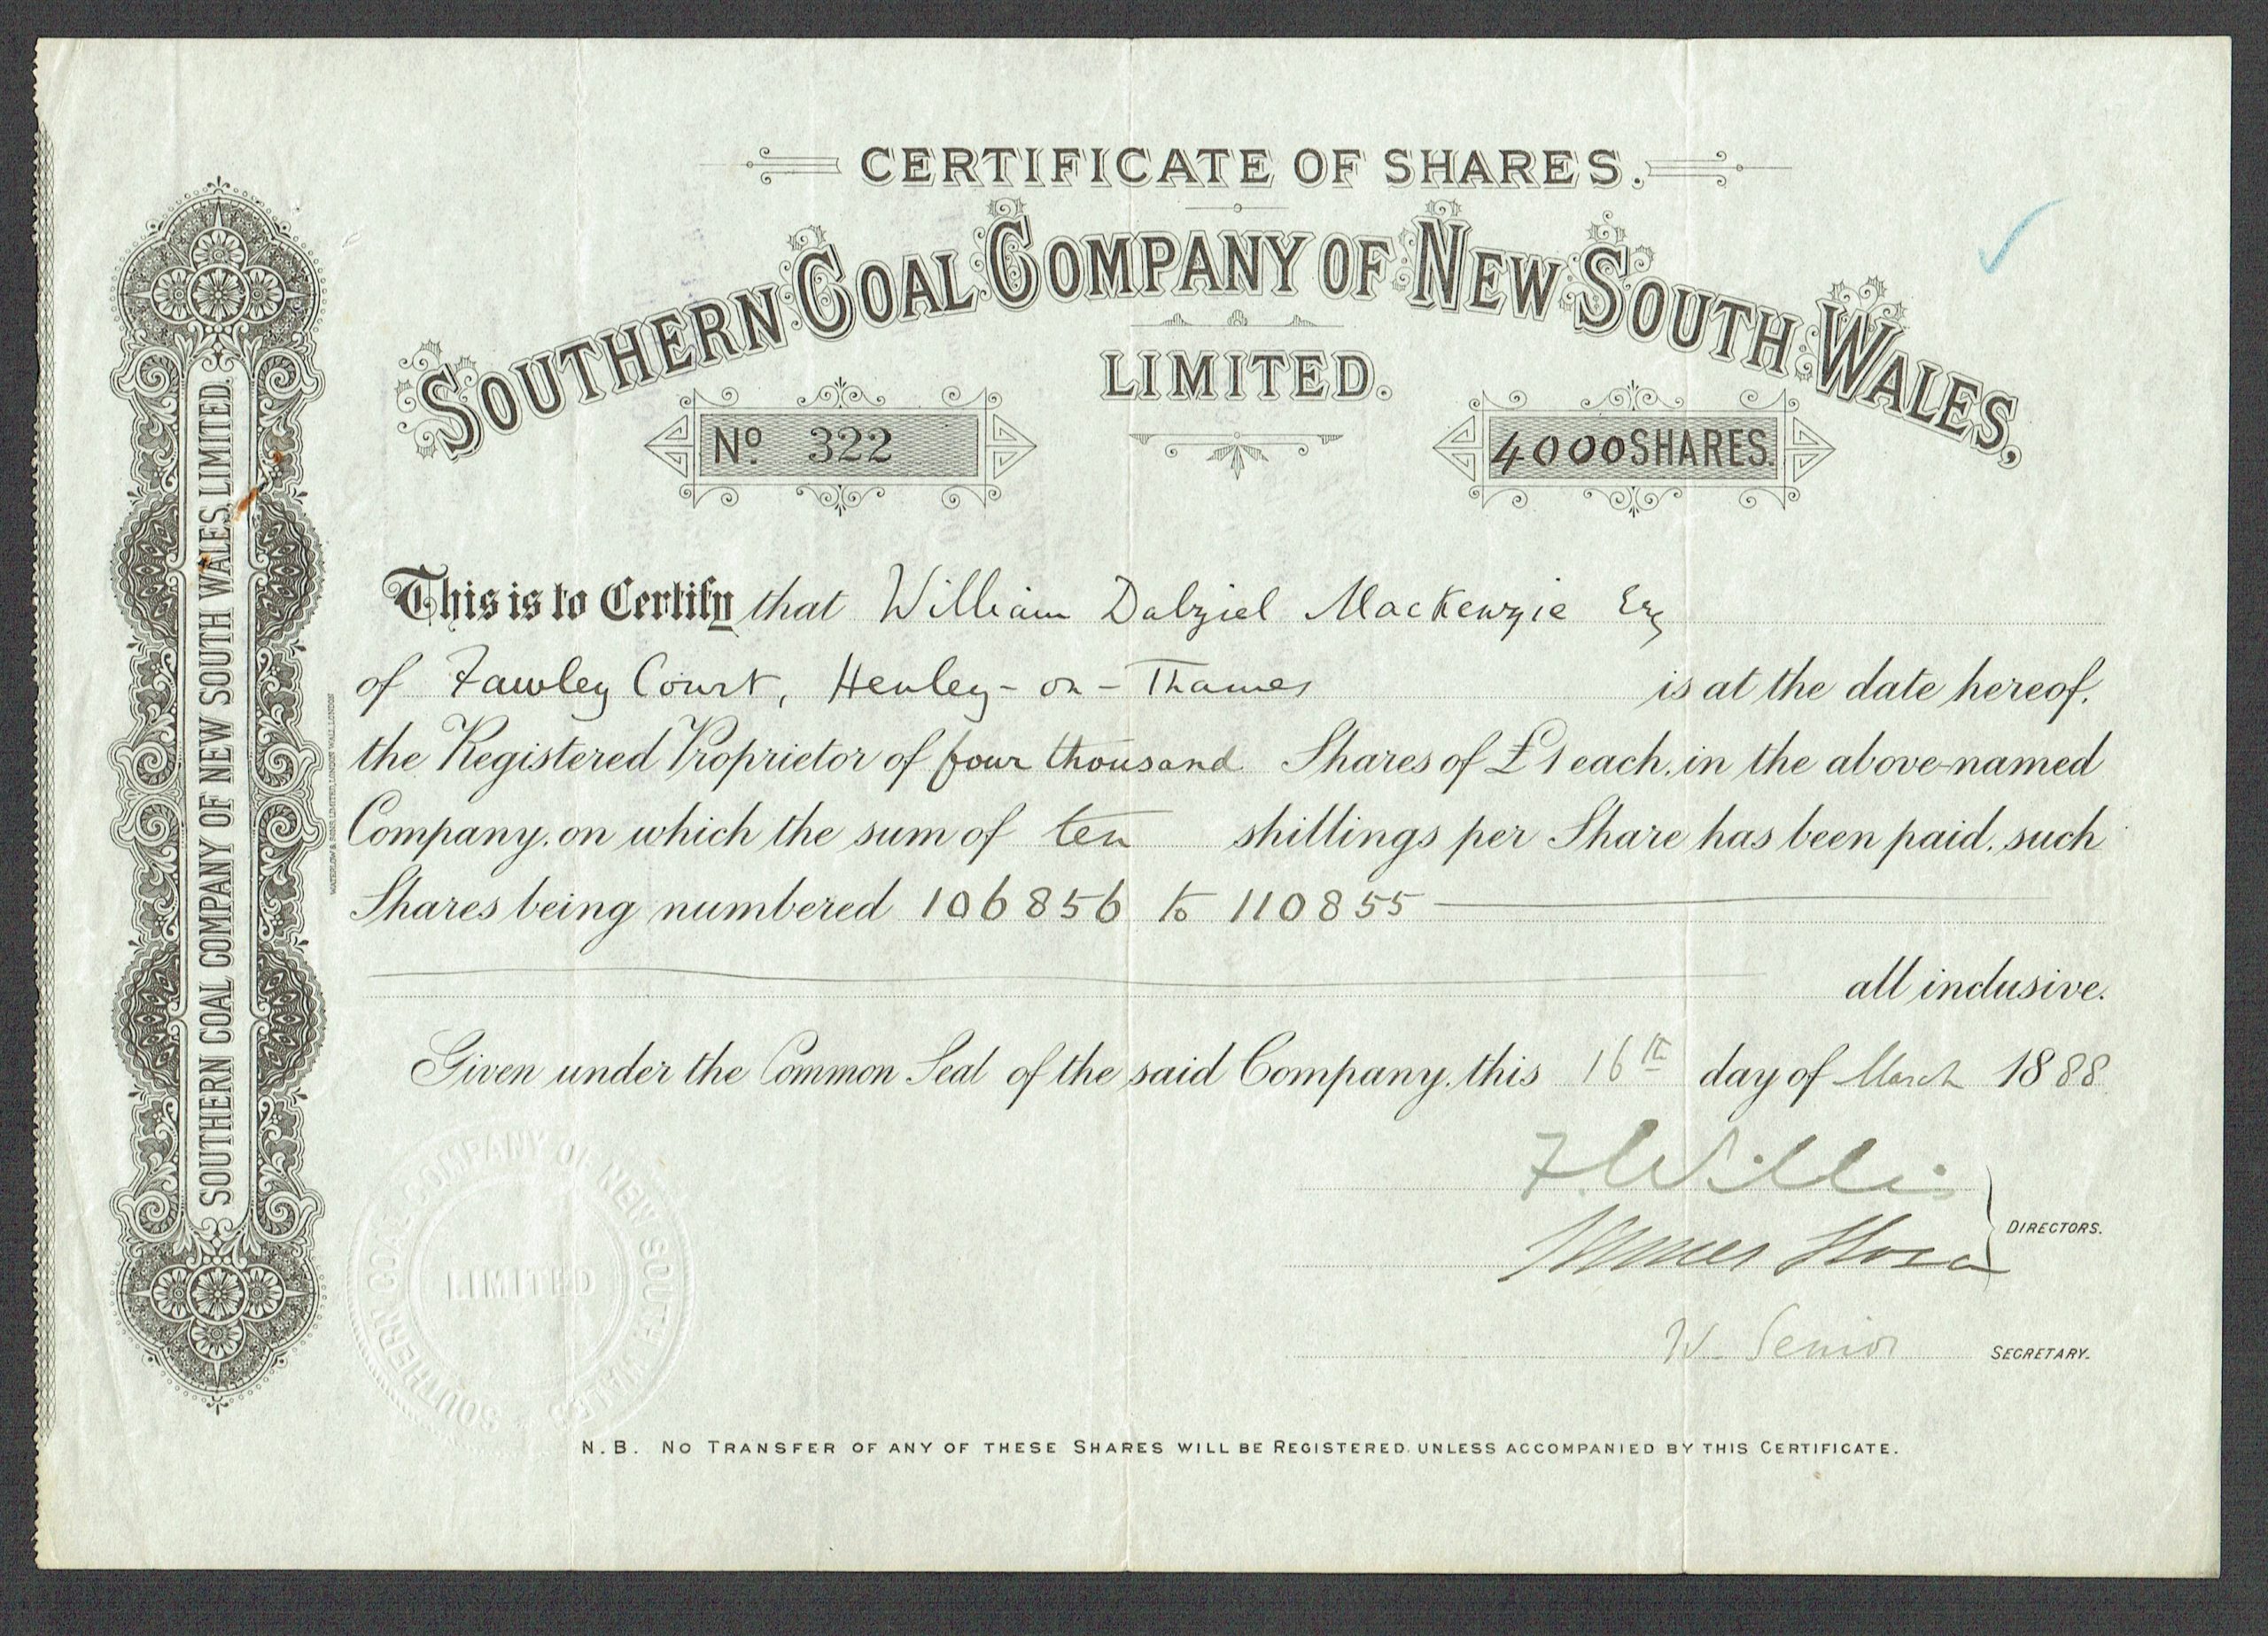 CERTIFICATE OF SHARES.
SOUTHERN COAL COMPANY OF NEW SOUTH WALES,
LIMITED.
No. 322
4000 SHARES.
This is to Certify that William Dalziel MacKenzie Esq
of Fawley Court, Henley-on-Thames is at the date hereof,
the Registered Proprietor of four thousand Shares of £1 each, in the above-named
Company, on which the sum of ten shillings per Share has been paid, such
Shares being numbered 106856 to 110855
all inclusive.
Given under the Common Seal of the said Company, this 16th day of March 1888
F. Willis
James
DIRECTORS.
W. Senior SECRETARY.
N.B. NO TRANSFER OF ANY OF THESE SHARES WILL BE REGISTERED, UNLESS ACCOMPANIED BY THIS CERTIFICATE.
SOUTHERN COAL COMPANY OF NEW SOUTH WALES, LIMITED.
WATERLOW & SONS LIMITED, LONDON WALL, LONDON
SOUTHERN COAL COMPANY OF NEW SOUTH WALES
LIMITED